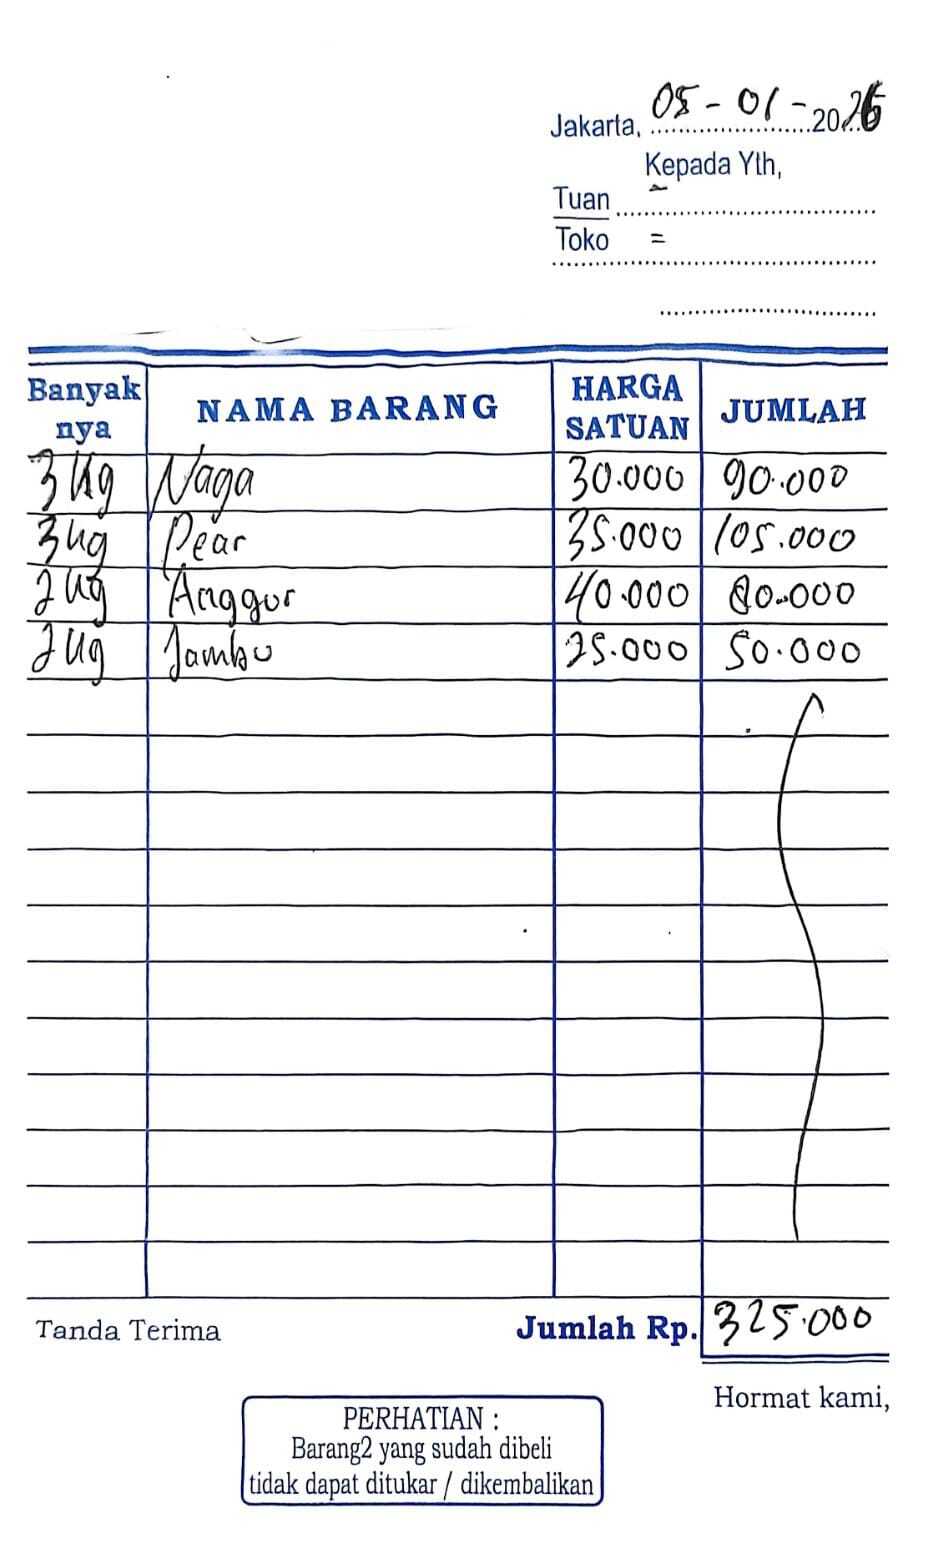 Jakarta, 05-01-2026
Kepada Yth,
Tuan
Toko =
Banyak nya NAMA BARANG HARGA SATUAN JUMLAH
3 Kg Naga 30.000 90.000
3 Kg Pear 35.000 105.000
2 Kg Anggur 40.000 80.000
2 Kg Jambu 25.000 50.000
Tanda Terima Jumlah Rp. 325.000
Hormat kami,
PERHATIAN :
Barang2 yang sudah dibeli
tidak dapat ditukar / dikembalikan